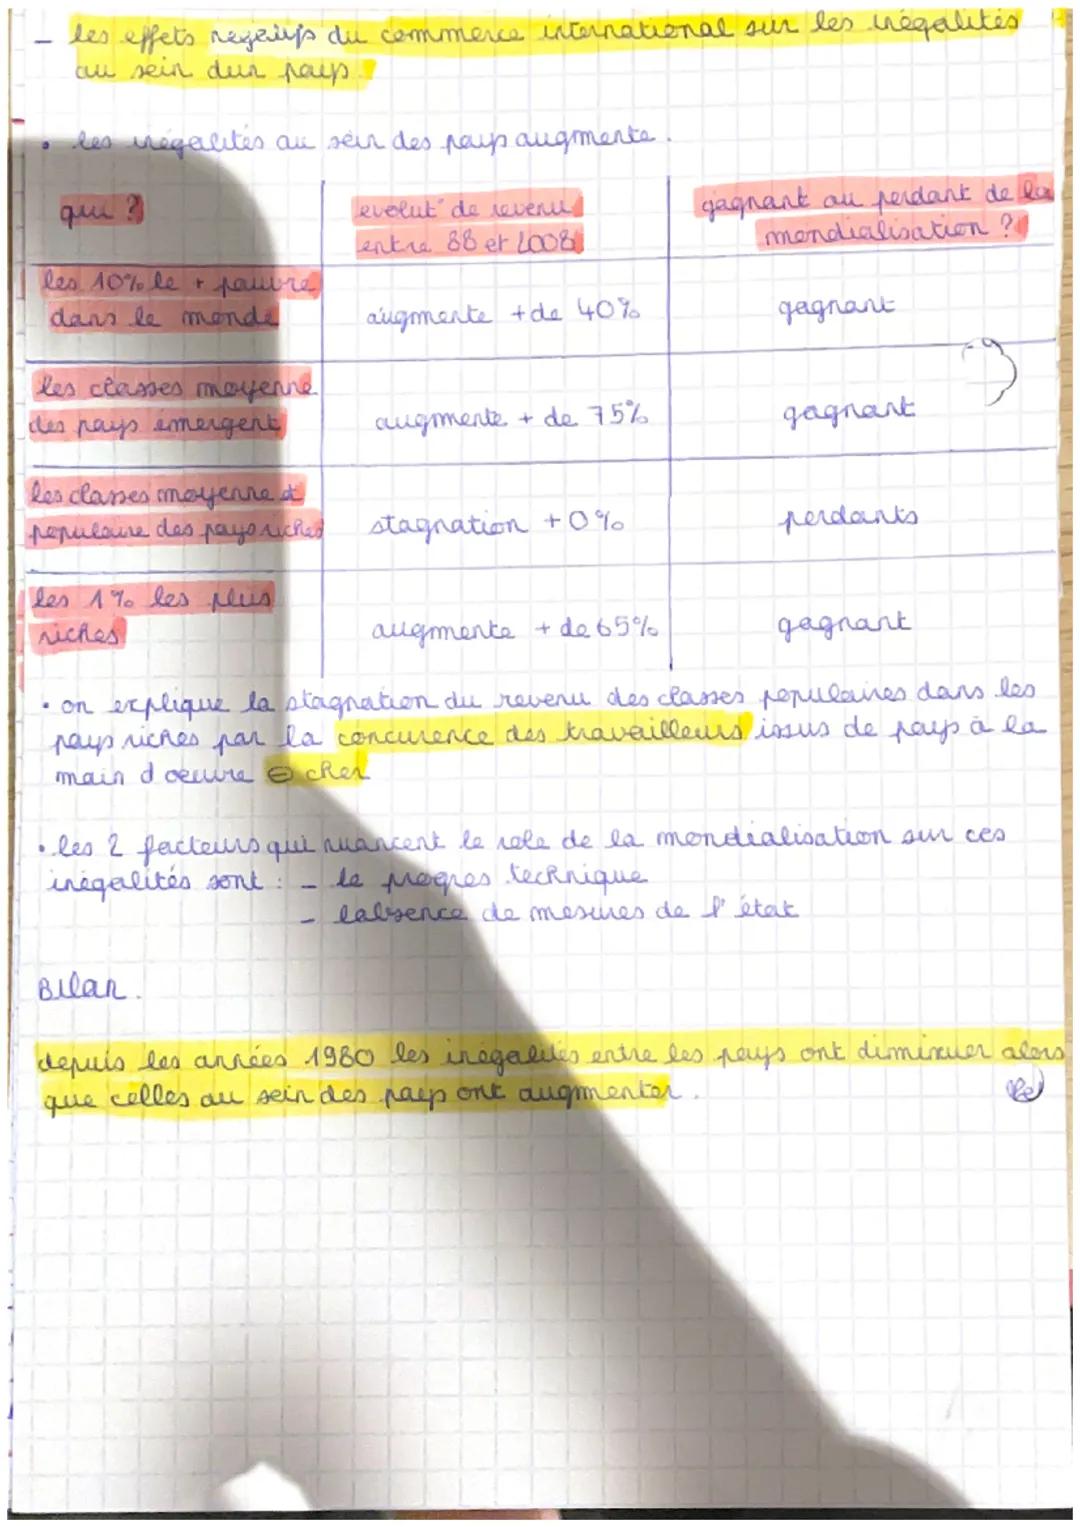 - les effets negatifs du commerce international sur les inégalités
au sein dun pays.
• les inégalités au sein des pays augmente.
qui ?
evolut° de revenu
entre 88 et 2008
gagnant ou perdant de la
mondialisation ?
les 10% le + pauvre
dans le monde
augmente + de 40%
gagnant
les classes moyenne
des pays émergent
augmente + de 75%
gagnant
les classes moyenne et
populaire des pays riches
stagnation + 0%
perdants
les 1% les plus
riches
augmente + de 65%
gagnant
• on explique la stagnation du revenu des classes populaires dans les
pays riches par la concurence des travailleurs issus de pays à la
main d oeuvre ⊖ cher
• les 2 facteurs qui nuancent le role de la mondialisation sur ces
inégalités sont : - le progres technique
- labsence de mesures de l'état
Bilan.
depuis les années 1980 les inégalités entre les pays ont diminuer alors
que celles au sein des pays ont augmenter.